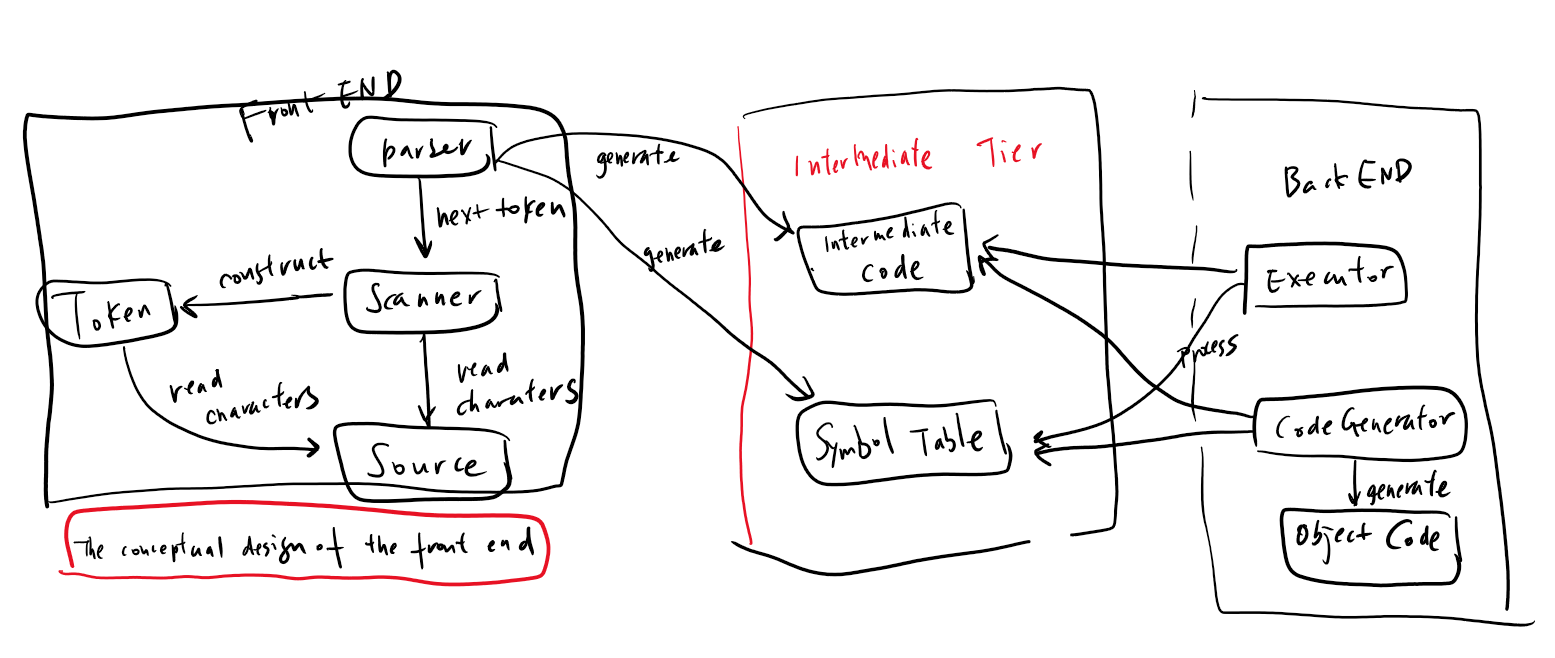 Front END
parser
next token
construct
Token
Scanner
read
characters
read
charaters
Source
The conceptual design of the front end
generate
generate
Intermediate Tier
Intermediate
code
Symbol Table
Back END
Executor
process
Code Generator
generate
Object Code